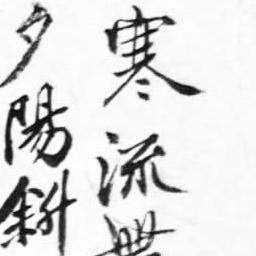 寒流
夕陽斜